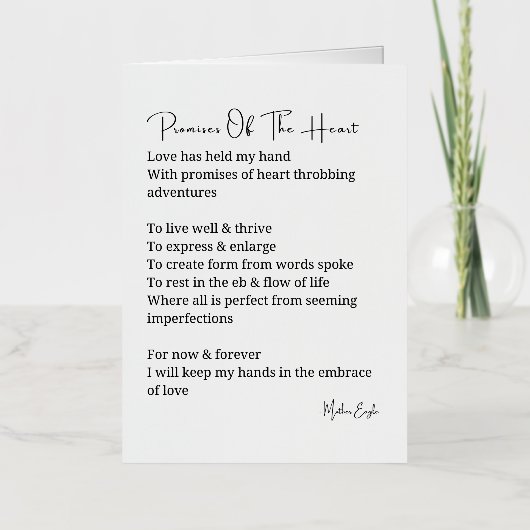 Promises Of The Heart
Love has held my hand
With promises of heart throbbing
adventures
To live well & thrive
To express & enlarge
To create form from words spoke
To rest in the eb & flow of life
Where all is perfect from seeming
imperfections
For now & forever
I will keep my hands in the embrace
of love